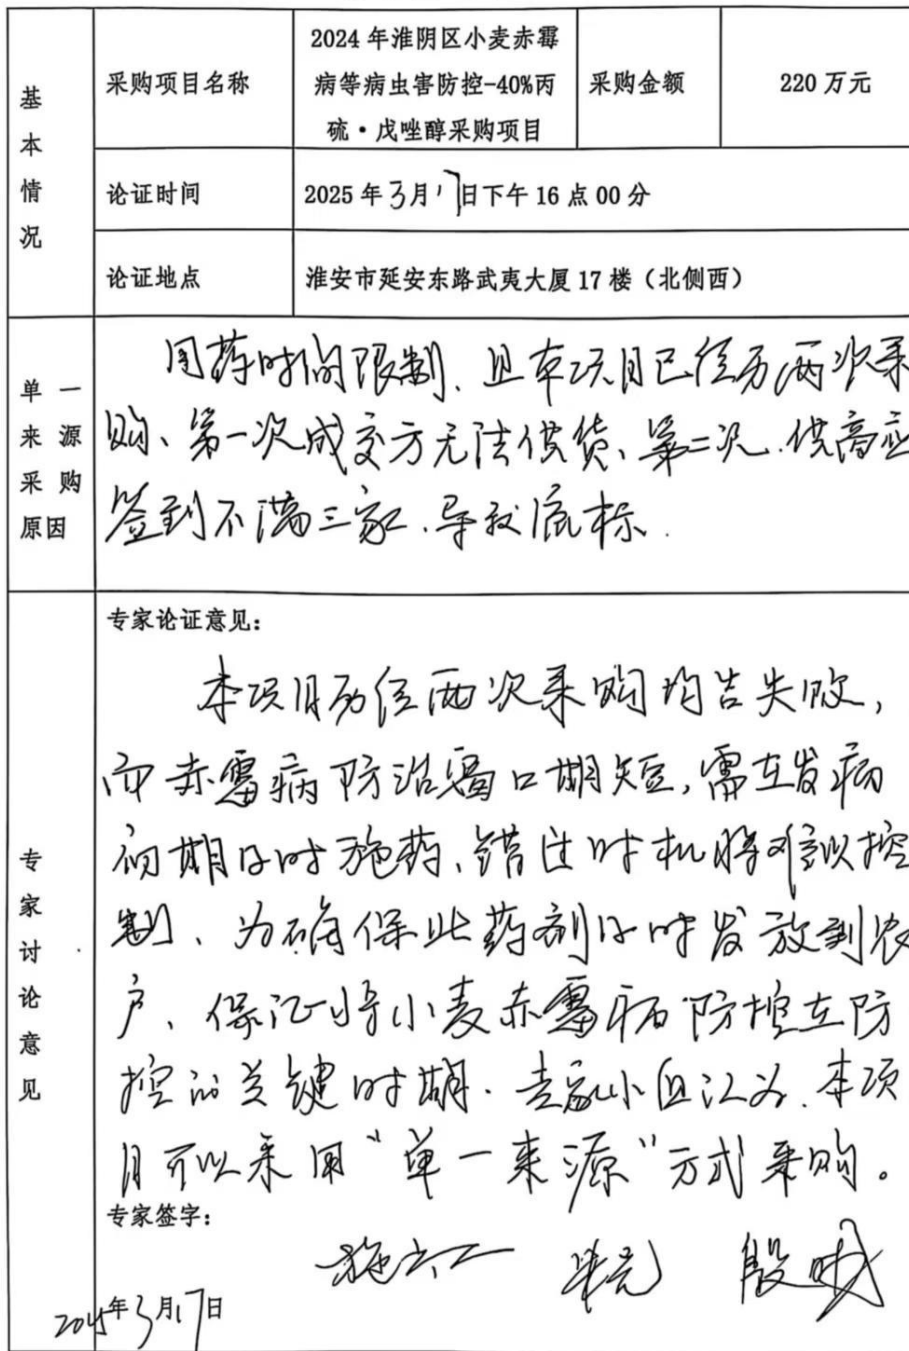 基本情况
采购项目名称
2024年淮阴区小麦赤霉
病等病虫害防控-40%丙
硫·戊唑醇采购项目
采购金额
220万元
论证时间
2025年3月17日下午16点00分
论证地点
淮安市延安东路武夷大厦17楼（北侧西）
单一
来源
采购
原因
用药时间限制、且本项目已经历两次采
购、第一次成交方无法供货、第二次.供商应
签到不满三家.导致废标.
专家讨论意见
专家论证意见：
本项目历经两次采购均告失败,
而赤霉病防治窗口期短,需在发病
初期及时施药、错过时机将难以控
制、为确保此药剂及时发放到农
户、保证将小麦赤霉病防控在防
控的关键时期.专家小组认为.本项
目可以采用“单一来源”方式采购。
专家签字：
2025年3月17日